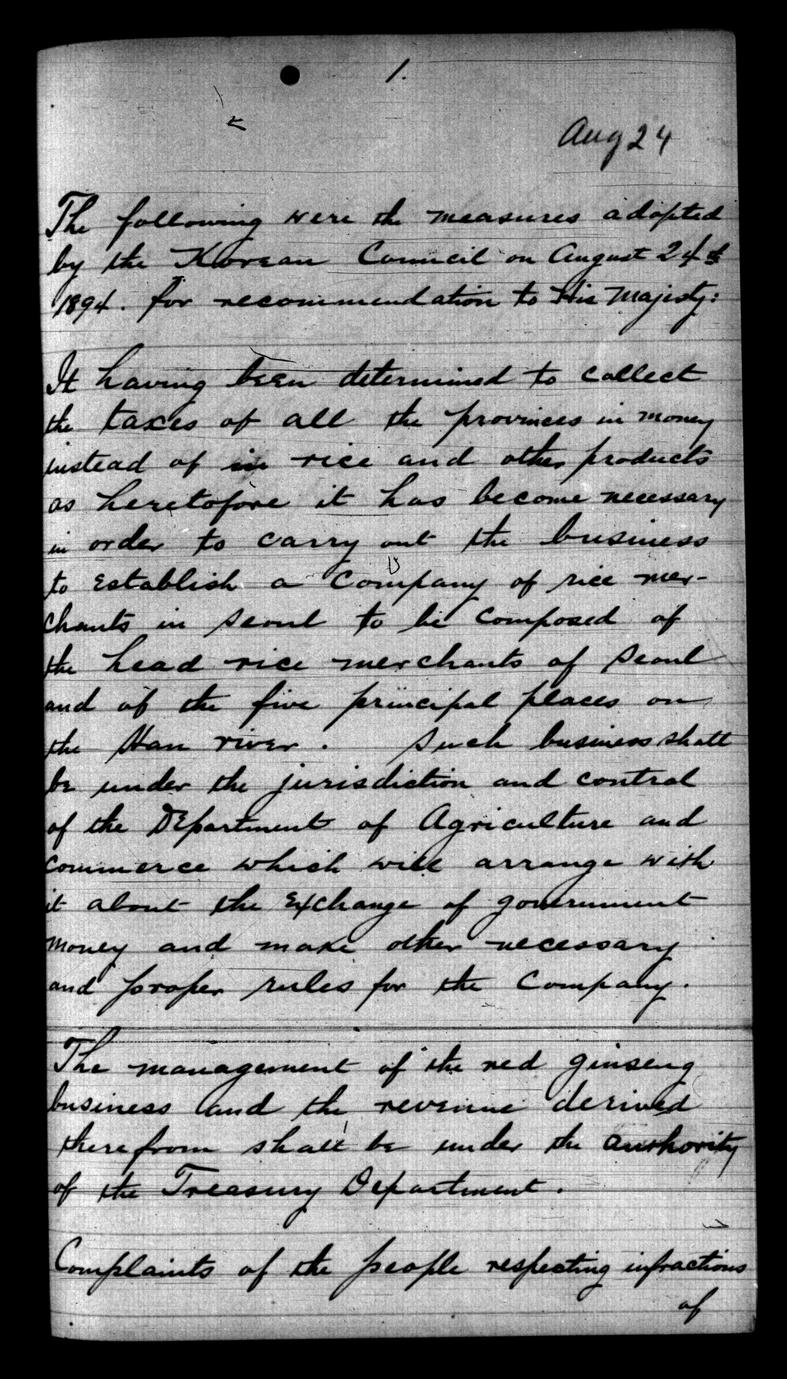 1.
Aug 24
The following were the measures adopted
by the Korean Council on August 24th
1894. for recommendation to His Majesty:
It having been determined to collect
the taxes of all the provinces in money
instead of in rice and other products
as heretofore it has become necessary
in order to carry out the business
to establish a Company of rice mer-
chants in Seoul to be composed of
the head rice merchants of Seoul
and of the five principal places on
the Han river. Such business shall
be under the jurisdiction and control
of the Department of Agriculture and
Commerce which will arrange with
it about the exchange of government
money and make other necessary
and proper rules for the Company.
The management of the red ginseng
business and the revenue derived
therefrom shall be under the authority
of the Treasury Department.
Complaints of the people respecting infractions
of